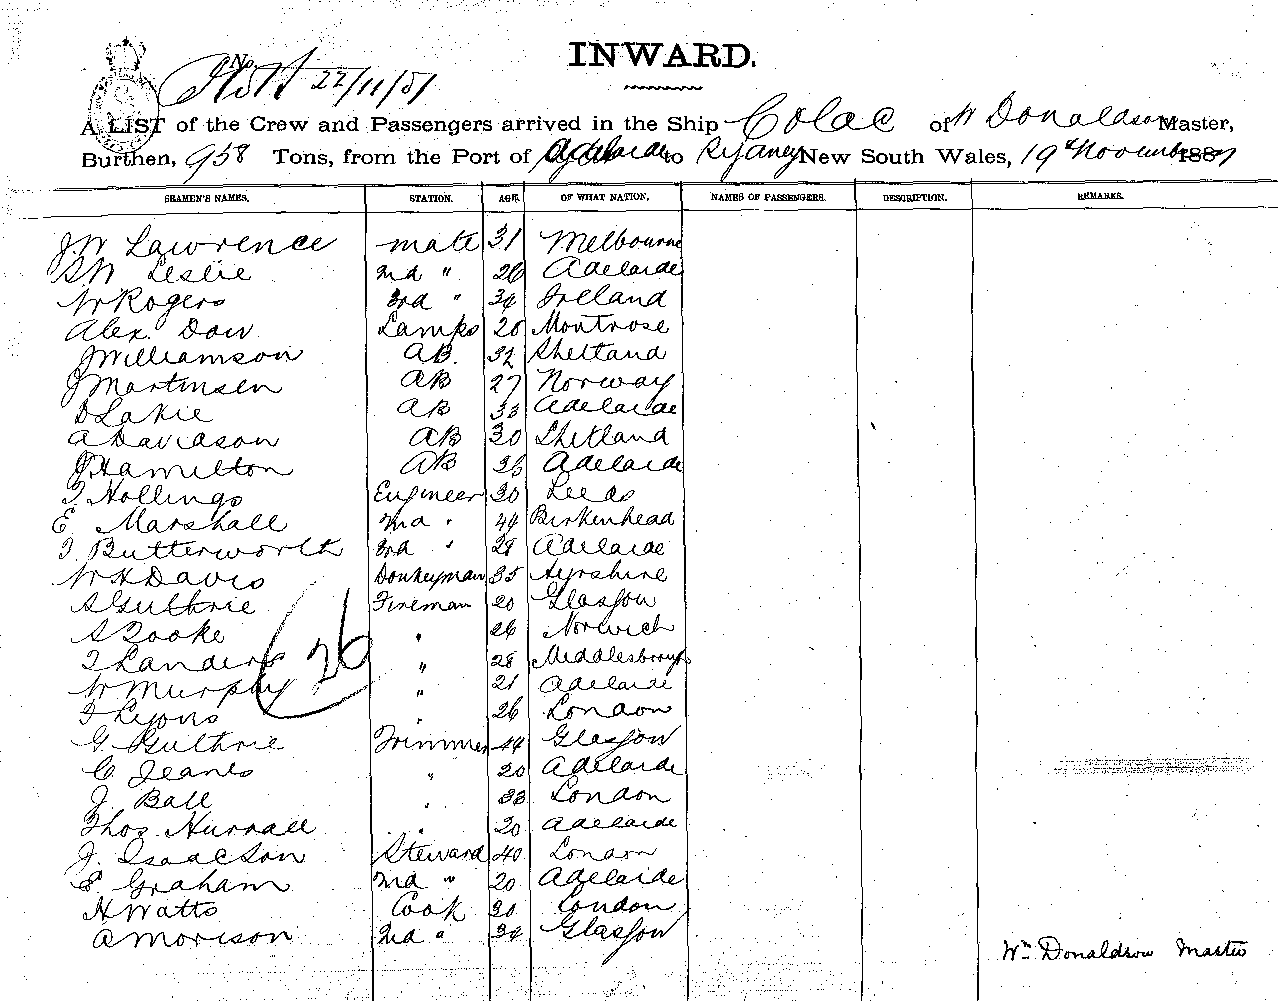 INWARD.
No.
22/11/87
A LIST of the Crew and Passengers arrived in the Ship Colac of W Donaldson Master,
Burthen, 958 Tons, from the Port of Adelaide to Sydney New South Wales, 19th November 1887
SEAMEN'S NAMES. STATION. AGE. OF WHAT NATION. NAMES OF PASSENGERS. DESCRIPTION. REMARKS.
J W Lawrence mate 31 Melbourne
R W Leslie 2nd " 26 Adelaide
W Rogers 3rd " 34 Ireland
Alex. Dow Lamps 20 Montrose
J Williamson AB. 32 Shetland
J Martinsen AB 27 Norway
D Lakie AB 33 Adelaide
A Davidson AB 30 Shetland
J Hamilton AB 36 Adelaide
T Hollings Engineer 30 Leeds
E. Marshall 2nd " 44 Birkenhead
T. Butterworth 3rd " 28 Adelaide
W H Davis Donkeyman 35 Ayrshire
A Guthrie Fireman 20 Glasgow
S Tooke " 26 Norwich
T Landers " 28 Middlesbrough
26
W Murphy " 21 Adelaide
T Lyons " 26 London
G. Guthrie Trimmer 44 Glasgow
C. Jeanes " 20 Adelaide
J. Ball " 33 London
Thos. Hurrall " 20 Adelaide
J. Isaacson Steward 40 London
E. Graham 2nd " 20 Adelaide
H Watts Cook 30 London
A Morison 2nd " 34 Glasgow
Wm Donaldson Master